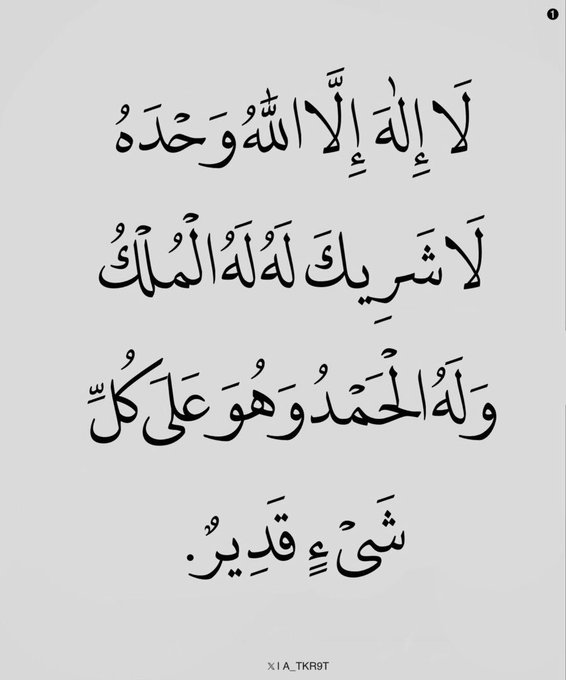 ❶
لَا إِلٰهَ إِلَّا اللّٰهُ وَحْدَهُ
لَا شَرِيكَ لَهُ لَهُ الْمُلْكُ
وَلَهُ الْحَمْدُ وَهُوَ عَلَى كُلِّ
شَيْءٍ قَدِيرٌ.
𝕏 | A_TKR9T